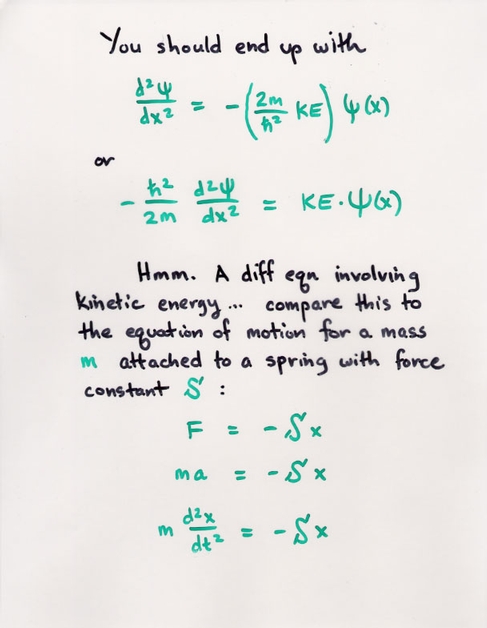 You should end up with
d²ψ/dx² = -(2m/ħ² KE) ψ(x)
or
- ħ²/2m d²ψ/dx² = KE·ψ(x)
Hmm. A diff eqn involving
kinetic energy... compare this to
the equation of motion for a mass
m attached to a spring with force
constant S :
F = -Sx
ma = -Sx
m d²x/dt² = -Sx